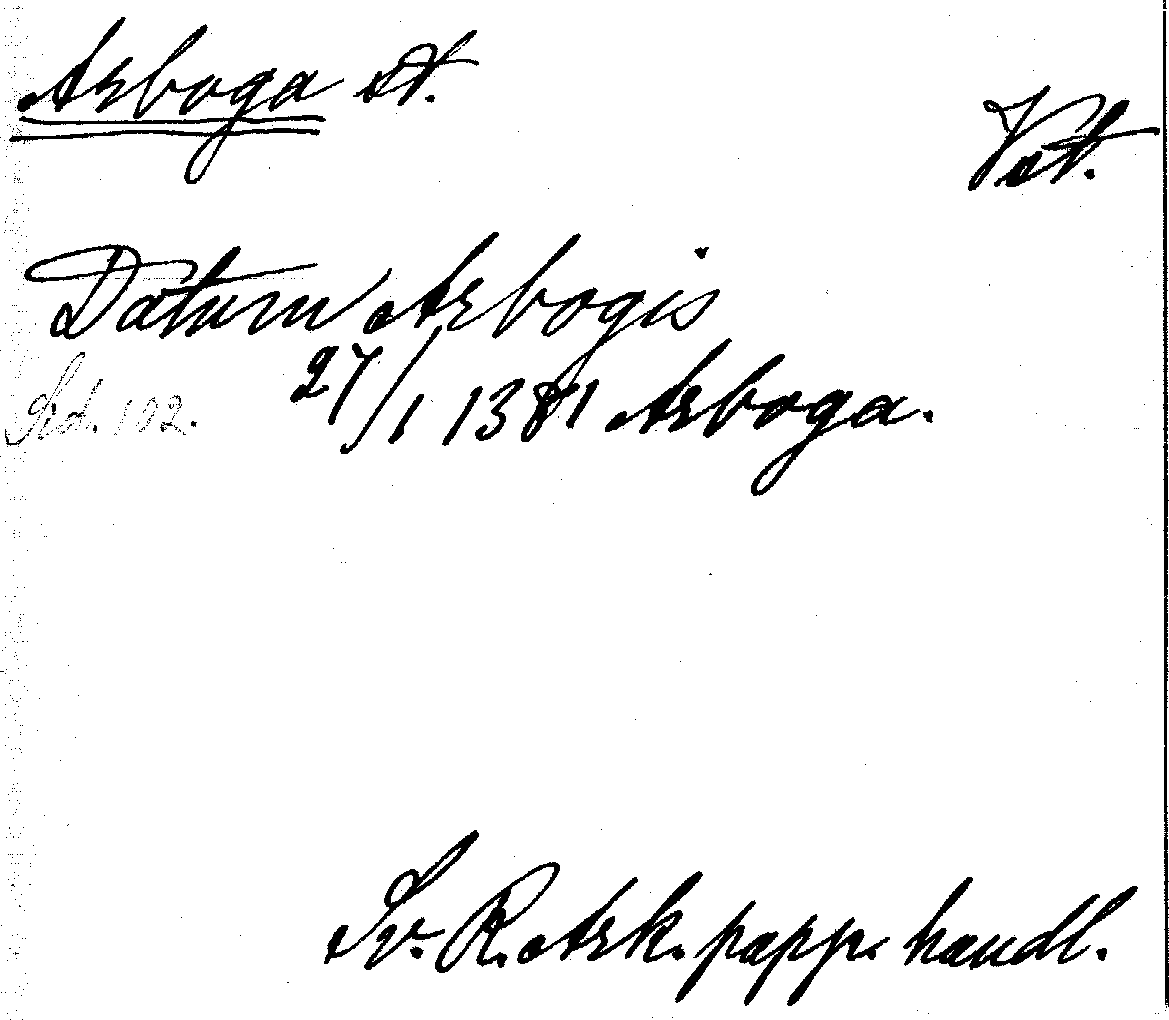 Arboga st.
Vst.
Datum Arbogis
27/1 1381 Arboga.
Sid. 102.
Sv. R. Ark. papp. handl.